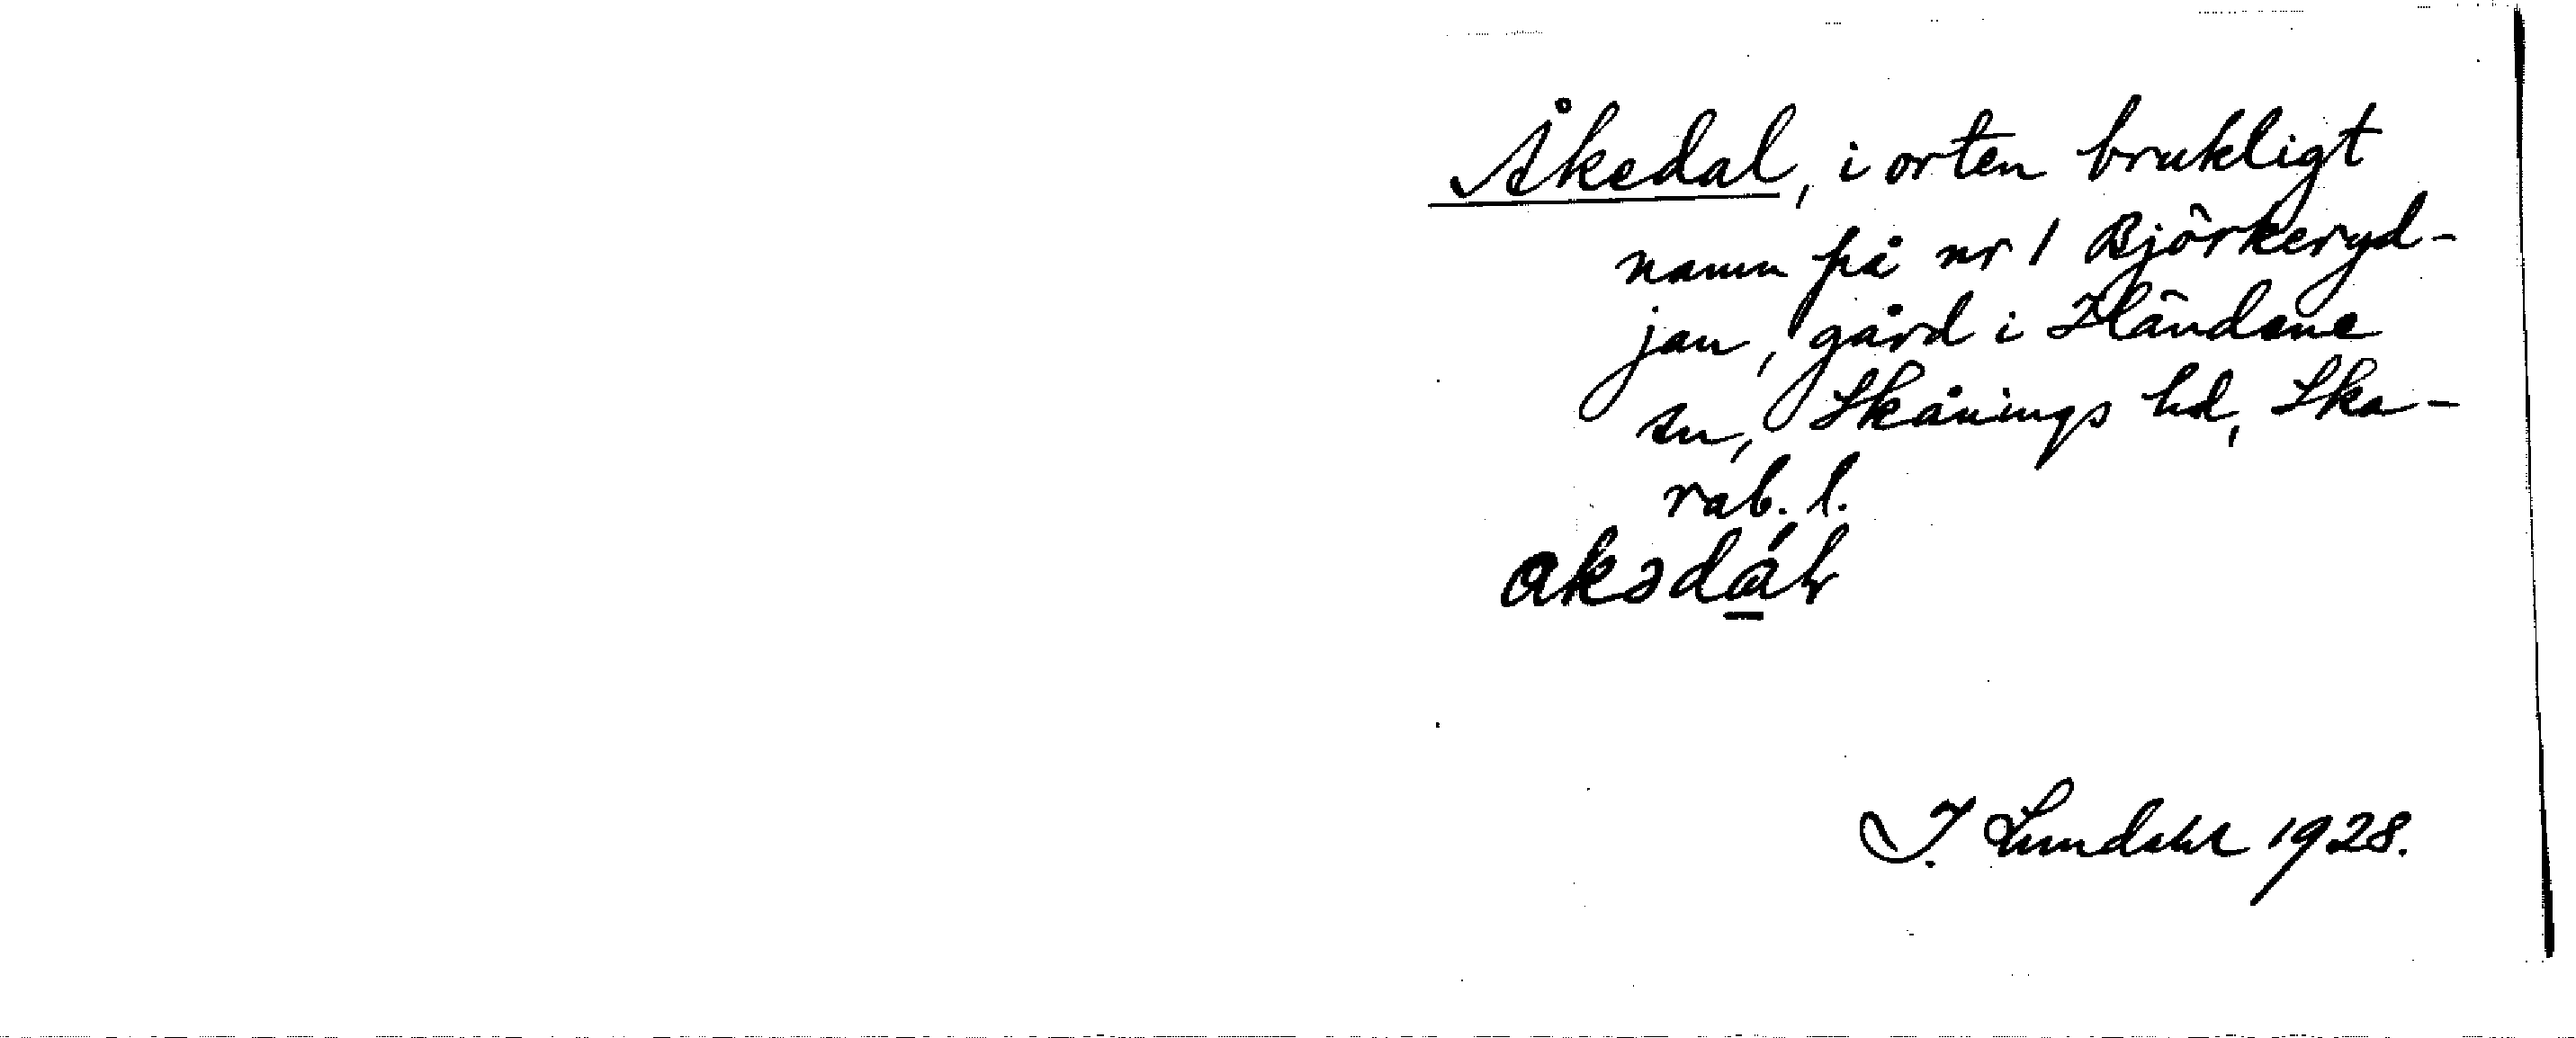 Åkedal, i orten brukligt
namn på nr 1 Björkeryd-
jan, gård i Händene
sn, Skånings hd, Ska-
rab. l.
I. Lundahl 1928.